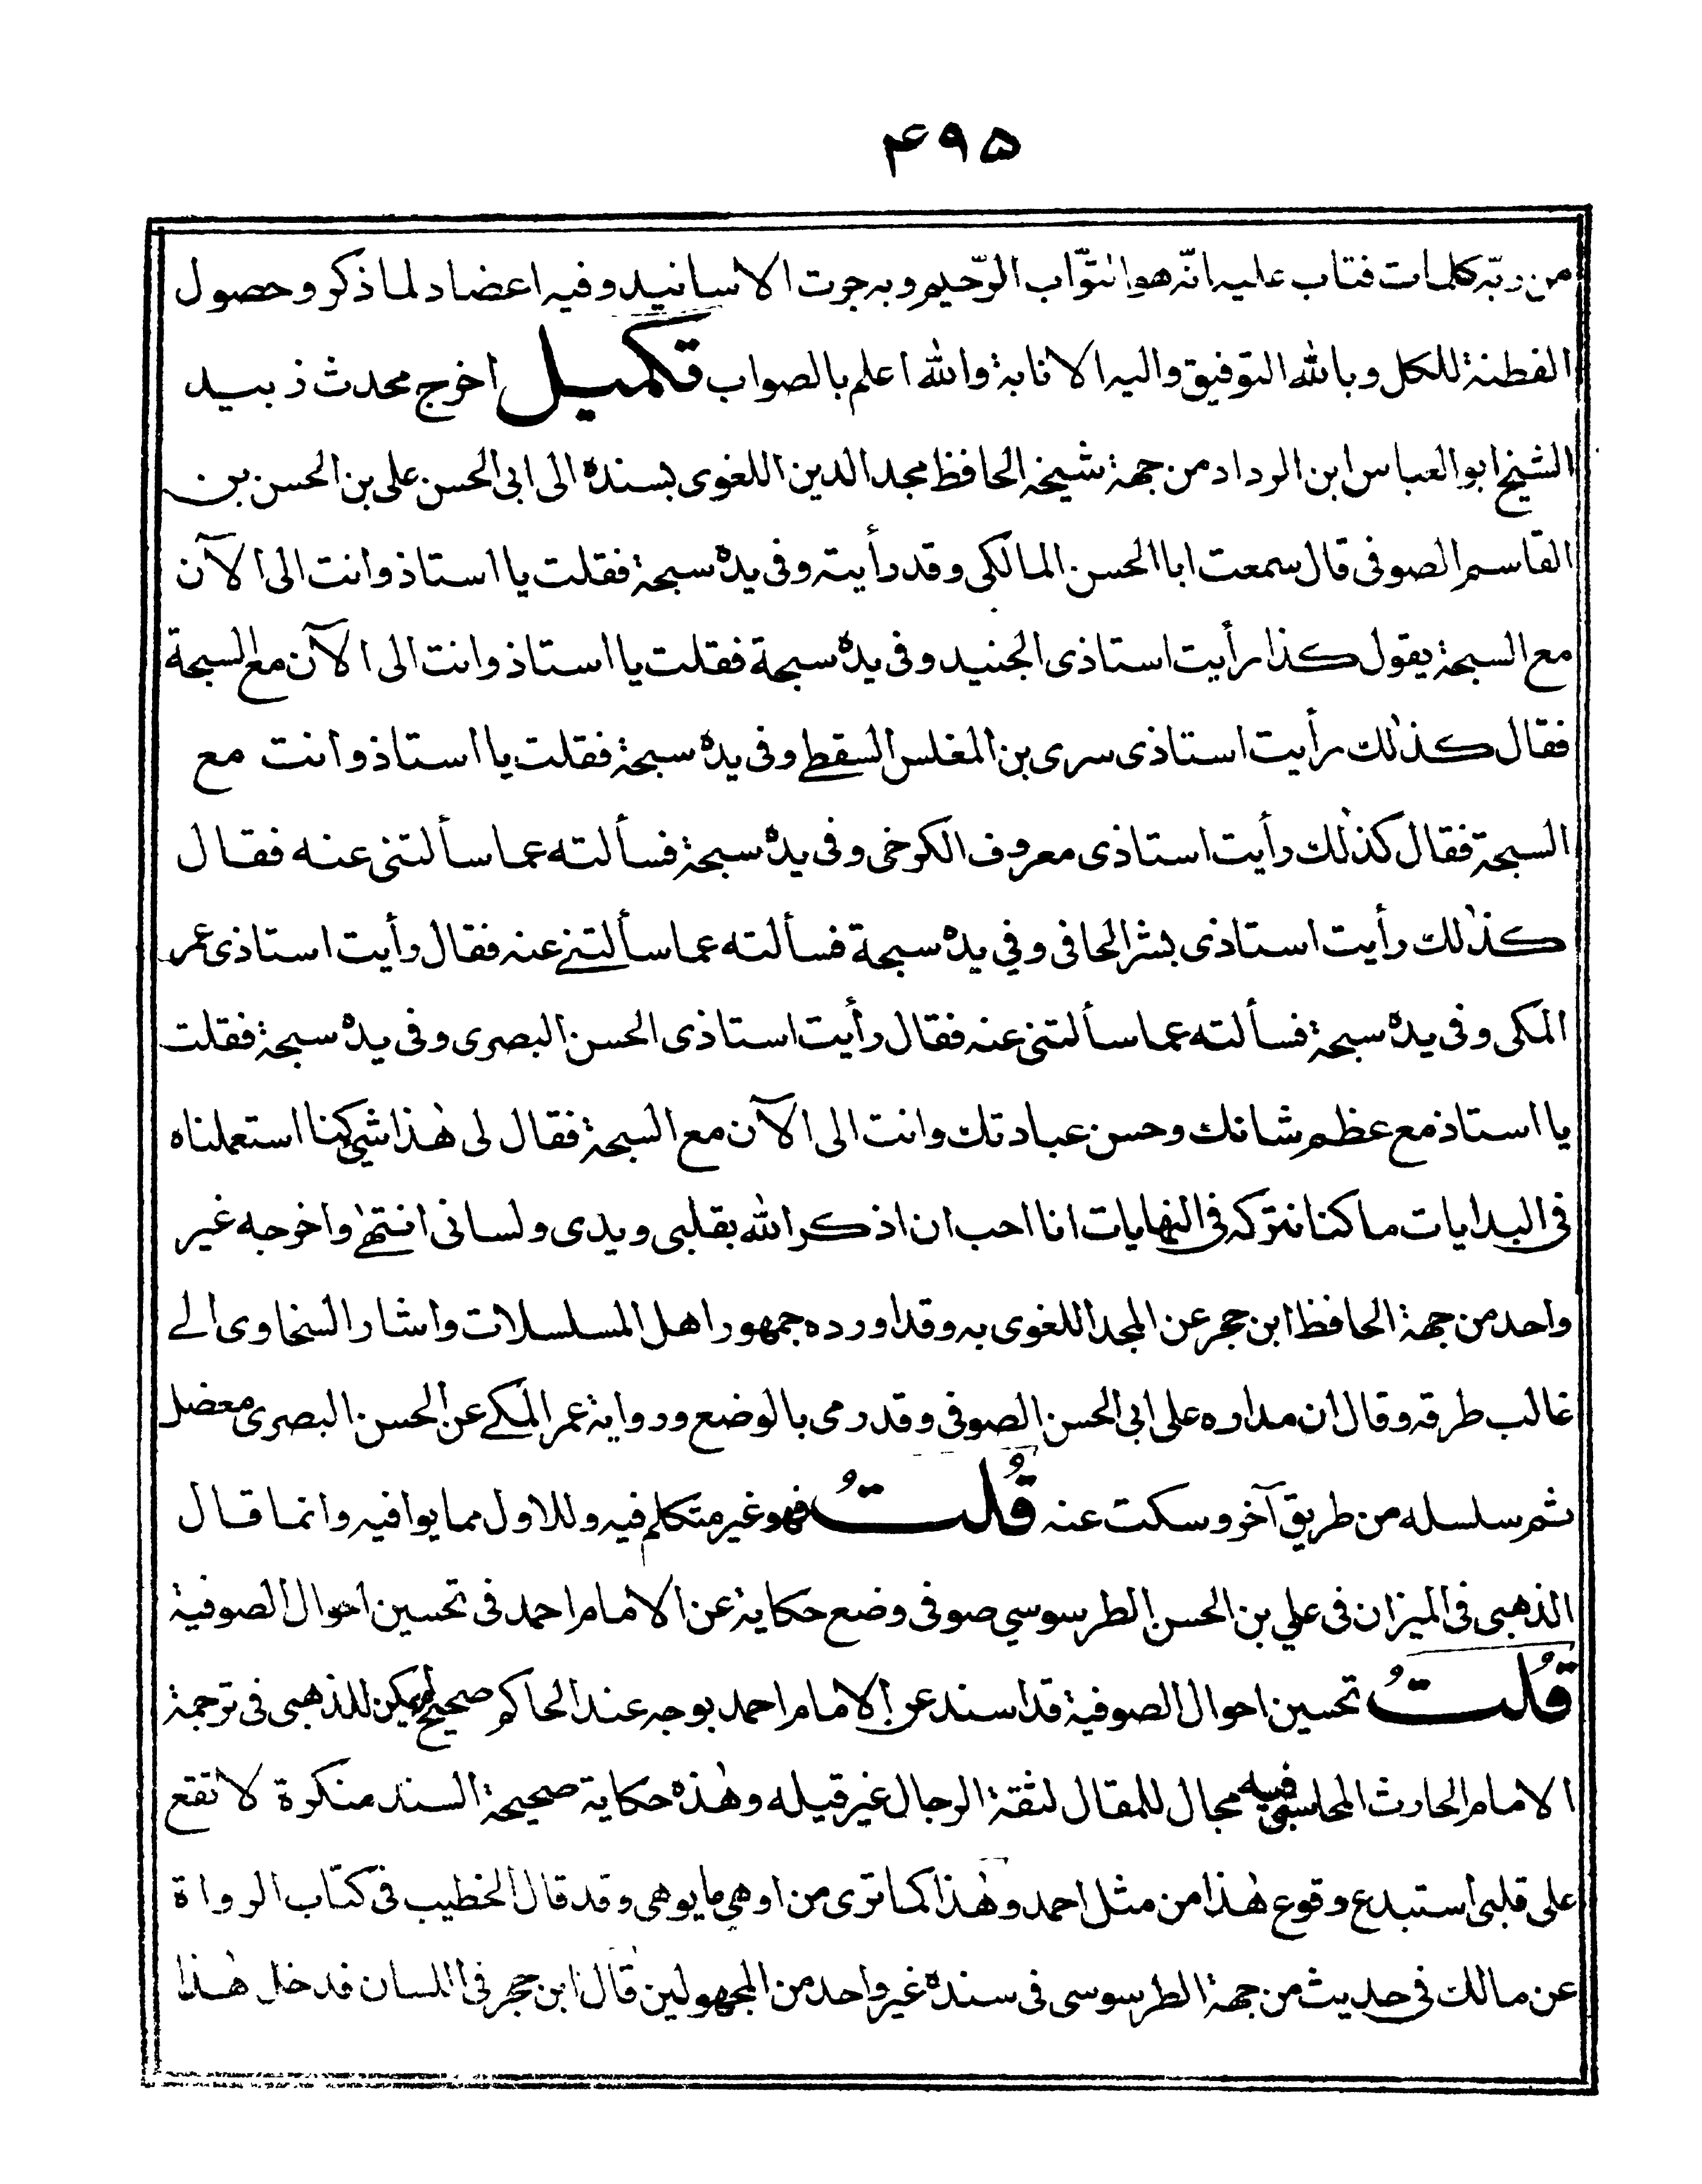 ۴۹۵
من ربّه كلمات فتاب عليه انّه هو التوّاب الرّحيم وبه جرت الاسانيد وفيه اعضاد لما ذكر وحصول
الفطنة للكل وبالله التوفيق واليه الانابة والله اعلم بالصواب تكميل اخرج محدث زبيد
الشيخ ابو العباس ابن الرداد من جهة شيخه الحافظ مجد الدين اللغوى بسنده الى ابى الحسن على بن الحسن بن
القاسم الصوفى قال سمعت ابا الحسن المالكى وقد رأيته وفى يده سبحة فقلت يا استاذ وانت الى الآن
مع السبحة يقول كذا رأيت استاذى الجنيد وفى يده سبحة فقلت يا استاذ وانت الى الآن مع السبحة
فقال كذلك رأيت استاذى سرى بن المغلس السقطے وفى يده سبحة فقلت يا استاذ وانت مع
السبحة فقال كذلك رأيت استاذى معروف الكرخى وفى يده سبحة فسألته عما سألتنى عنه فقال
كذلك رأيت استاذى بشر الحافى وفي يده سبحة فسألته عما سألتنے عنه فقال رأيت استاذى عمر
المكى وفى يده سبحة فسألته عما سألتنى عنه فقال رأيت استاذى الحسن البصرى وفى يده سبحة فقلت
يا استاذ مع عظم شانك وحسن عبادتك وانت الى الآن مع السبحة فقال لى هذا شئ كنا استعملناه
فى البدايات ما كنا نتركه فى النهايات انا احب ان اذكر الله بقلبى ويدى ولسانى انتهے واخرجه غير
واحد من جهة الحافظ ابن حجر عن المجد اللغوى به وقد اورده جمهور اهل المسلسلات واشار السخاوى الے
غالب طرقه وقال ان مداره على ابى الحسن الصوفى وقد رمى بالوضع ورواية عمر المكے عن الحسن البصرى معضل
ثم سلسله من طريق آخر وسكت عنه قُلتُ فهو غير متكلم فيه وللاول مما يوافيه وانما قال
الذهبى فى الميزان فى علي بن الحسن الطرسوسي صوفى وضع حكاية عن الامام احمد فى تحسين احوال الصوفية
قُلتُ تحسين احوال الصوفية قد اسند عن الامام احمد بوجه عند الحاكم صحيح لم يكن للذهبى فى ترجمة
الامام الحارث المحاسبى فيه مجال للمقال لثقة الرجال غير قيله وهذه حكاية صحيحة السند منكرة لا تقع
على قلبى استبدع وقوع هذا من مثل احمد وهذا كما ترى من اوهى ما يوهى وقد قال الخطيب فى كتاب الرواة
عن مالك فى حديث من جهة الطرسوسى فى سنده غير واحد من المجهولين قال ابن حجر فى اللسان فدخل هذا